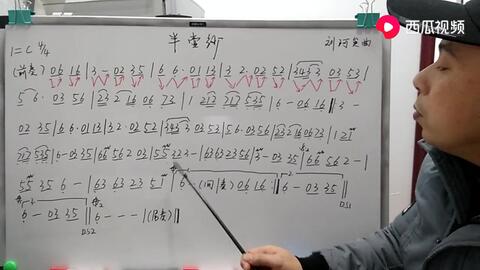 西瓜视频
半壶纱
1=C 4/4
刘珂矣曲
(前奏) 06 16 | 3 - 02 35 | 6 6 · 01 13 | 3 2 · 02 52 | 343 3 03 53 |
5 6 · 03 56 | 23 2 16 06 73 | 1 212 217 535 | 6 - 06 16 ‖ 3 -
02 35 | 6 6 · 01 13 | 3 2 · 02 52 | 343 3 03 53 | 56 · 03 56 | 23 2 16 06 73 | 1 21
217 535 | 6 - 03 35 | 66 56 2 03 | 55 32 3 - | 63 63 23 56 | 3 - 03 35 | 66 56 2 - |
55 35 6 - | 63 63 23 51 | 6 - (间奏) 06 16 ‖ 6 - 03 35 ‖
DS1
6 - 03 35 ‖ 6 - - - | (尾奏) ‖
DS2